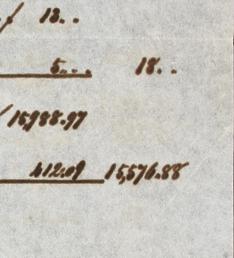 / 13..
5... 18..
/ 15,988.97
412.09 15,576.88